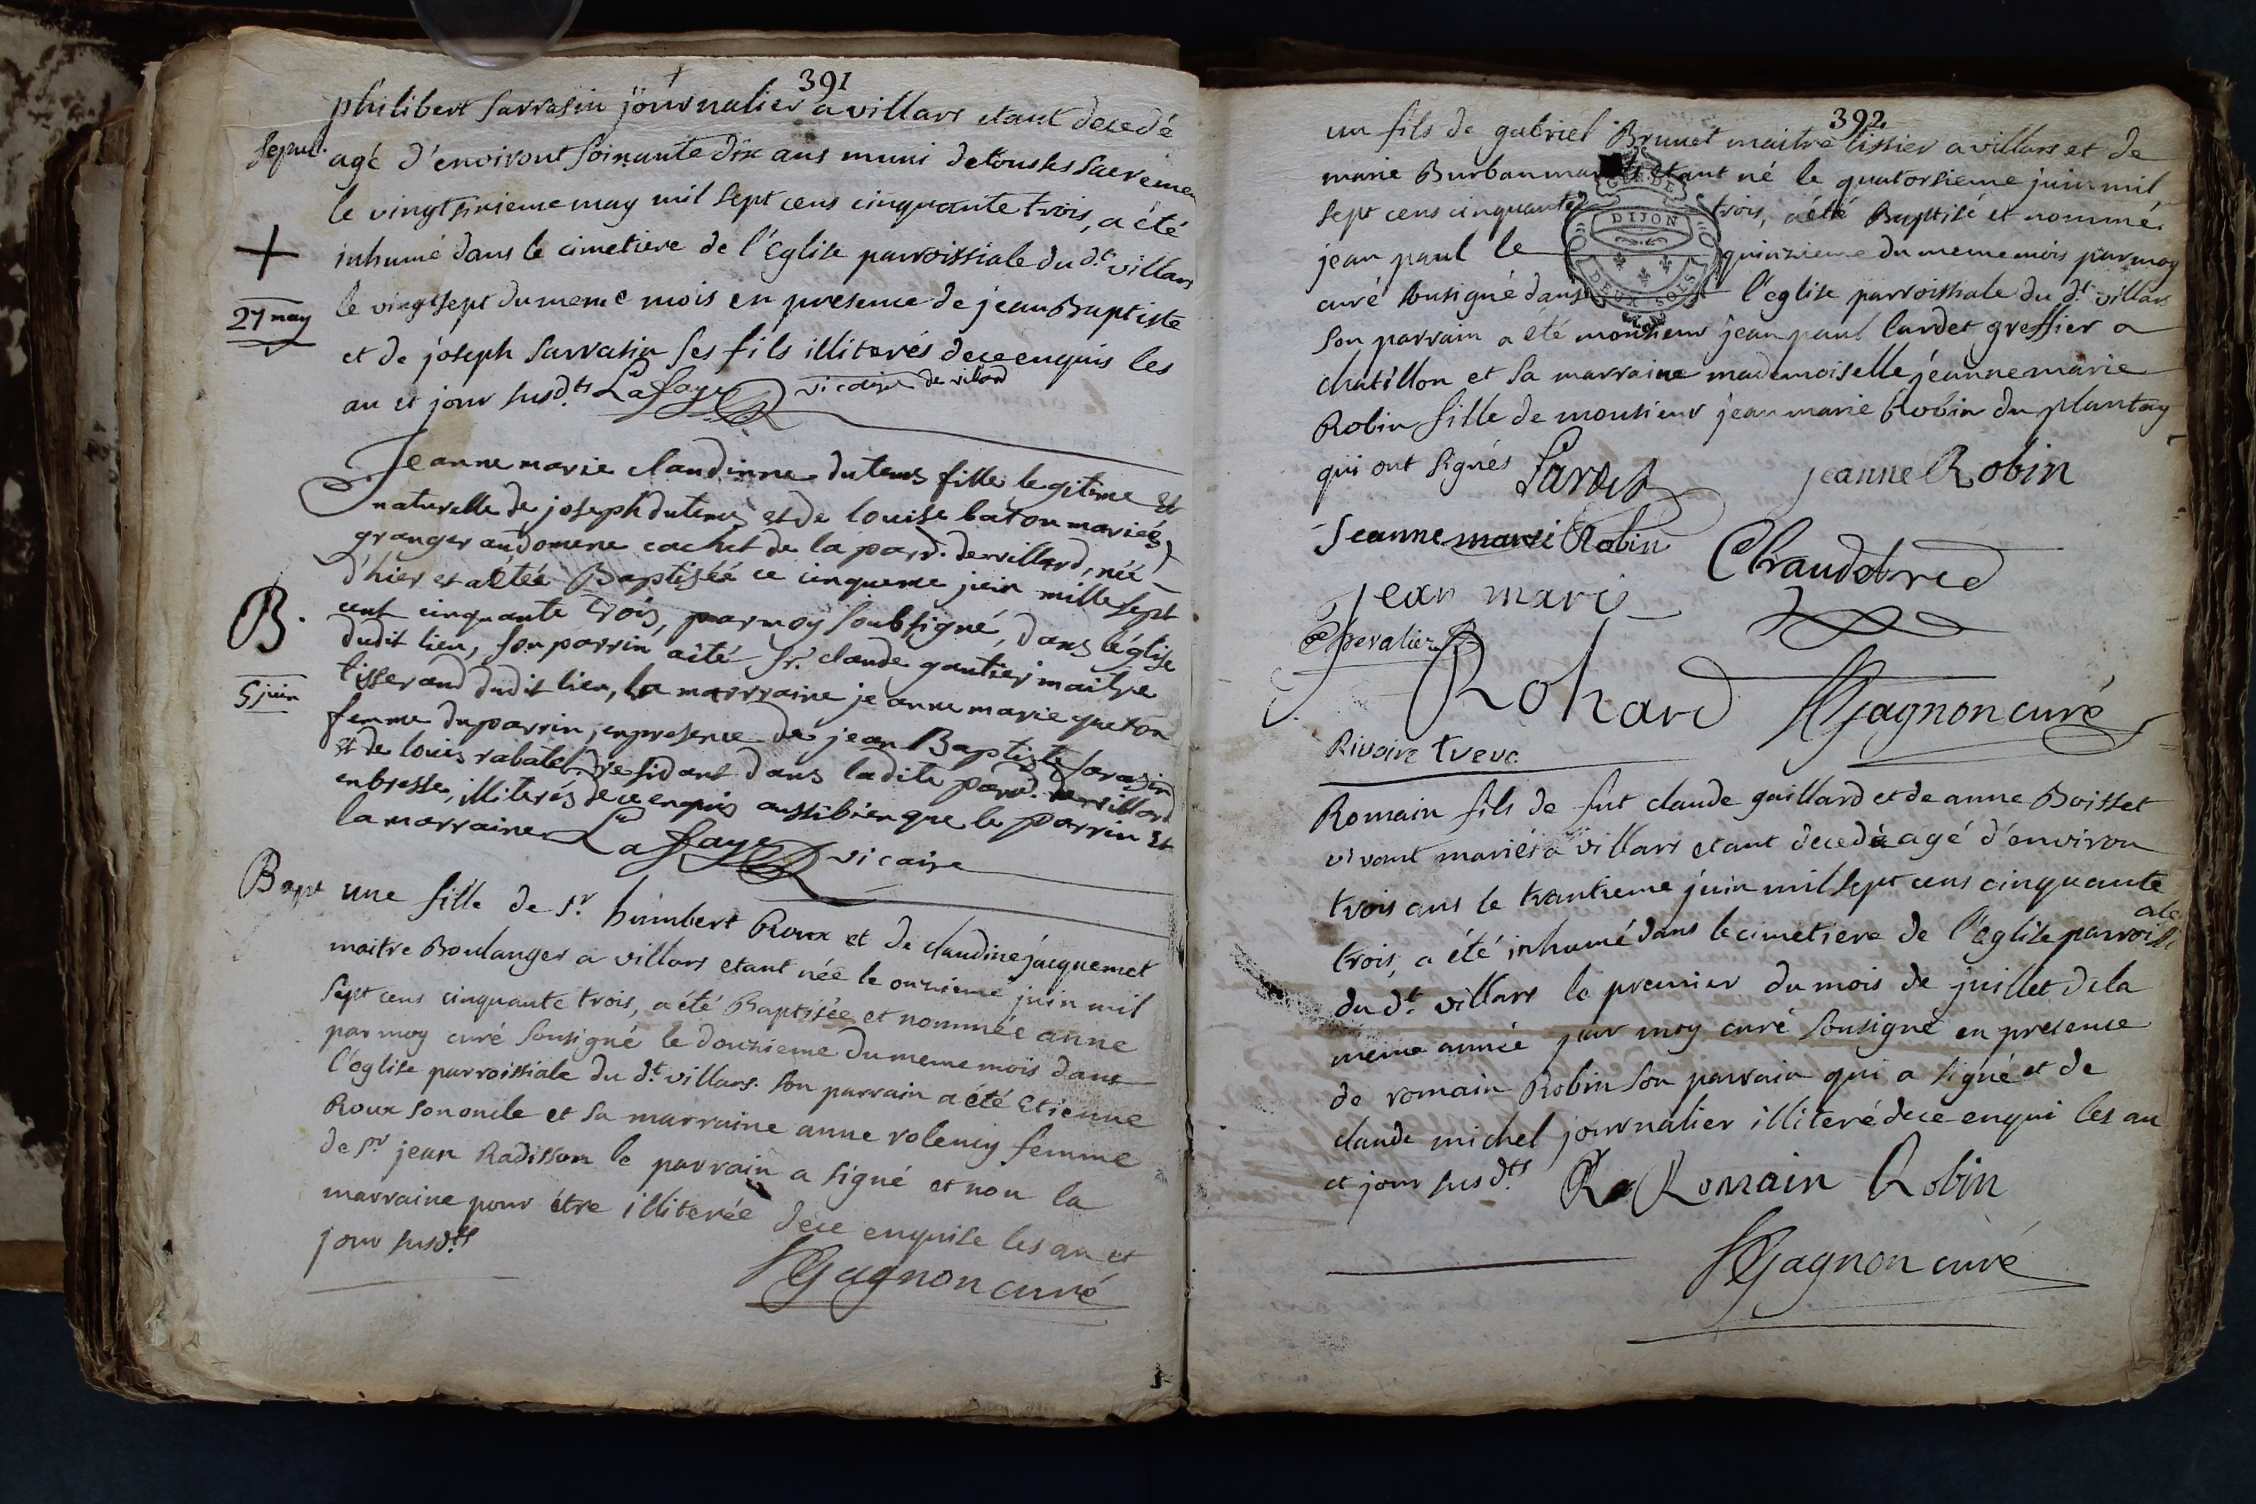 391
philibert sarrasin journalier a villars etant decedé
Sepul. agé d'environt soixante dix ans muni de tous ses sacremen
le vingt sixieme may mil sept cens cinquante trois, a été
inhumé dans le cimetiere de l'Eglise parroissiale du d.t villars
27 may
le vingt sept du meme mois en presence de jean Baptiste
et de joseph sarrasin ses fils illiterés de ce enquis les
an et jour susd.ts Lafaye vicaire de villard
Jeanne marie claudinne dutems fille legiteme et
naturelle de joseph dutems et de louise baton mariés
granger au domene cachet de la parr. de villard, néé
d'hier et a étée Baptisée ce cinqueme juin mille sept
B.
cent cinquante trois, par moy soubsigné, dans l'église
dudit lieu, son parrin a été sr. claude gautier maitre
5 juin
tisserand dudit lieu, la marrraine jeanne marie queton
femme du parrin, en presence de jean Baptiste sarasin
et de louis rabatel residant dans ladite parr. de villard
en bresse, illiterés de ce enquis aussi bien que le parrin et
la marraine Lafaye vicaire
Bapt une fille de sr. humbert Roux et de claudine jacquemet
maitre Boulanger a villars etant née le onzieme juin mil
sept cens cinquante trois, a été Baptisée et nommée anne
par moy curé sousigné le douzieme du meme mois dans
l'église parroissiale du d.t villars. son parrain a été Etienne
Roux son oncle et sa marraine anne volency femme
de sr. jean Radisson le parrain a signé et non la
marraine pour étre illiterée de ce enquise les an et
jour susd.ts
Gagnon curé
392
un fils de gabriel Brunet maitre tissier a villars et de
marie Burban mariés etant né le quatorsieme juin mil
sept cens cinquante trois, a été Baptisé et nommé
GEN. DE
DIJON
DEUX SOLS
jean paul le quinzieme du meme mois par moy
curé sousigné dans l'eglise parroissiale du d.t villars
son parrain a été monsieur jean paul lardet greffier a
chatillon et sa marraine mademoiselle jéanne marie
Robin fille de monsieur jean marie Robin du plantay
qui ont signés Lardet jeanne Robin
Jeanne marie Robin
jean marie
chevalier
Rohard Gagnon curé
Rivoire
Romain fils de fut claude gaillard et de anne Boisset
vivant mariés a villars etant decedé agé d'environ
trois ans le trantieme juin mil sept cens cinquante
trois, a été inhumé dans le cimetiere de l'eglise parroissiale
du d.t villars le premier du mois de juillet de la
meme année par moy curé sousigné en presence
de romain Robin son parrain qui a signé et de
claude michel journalier illiteré de ce enqui les an
et jour susd.ts R Romain Robin
Gagnon curé